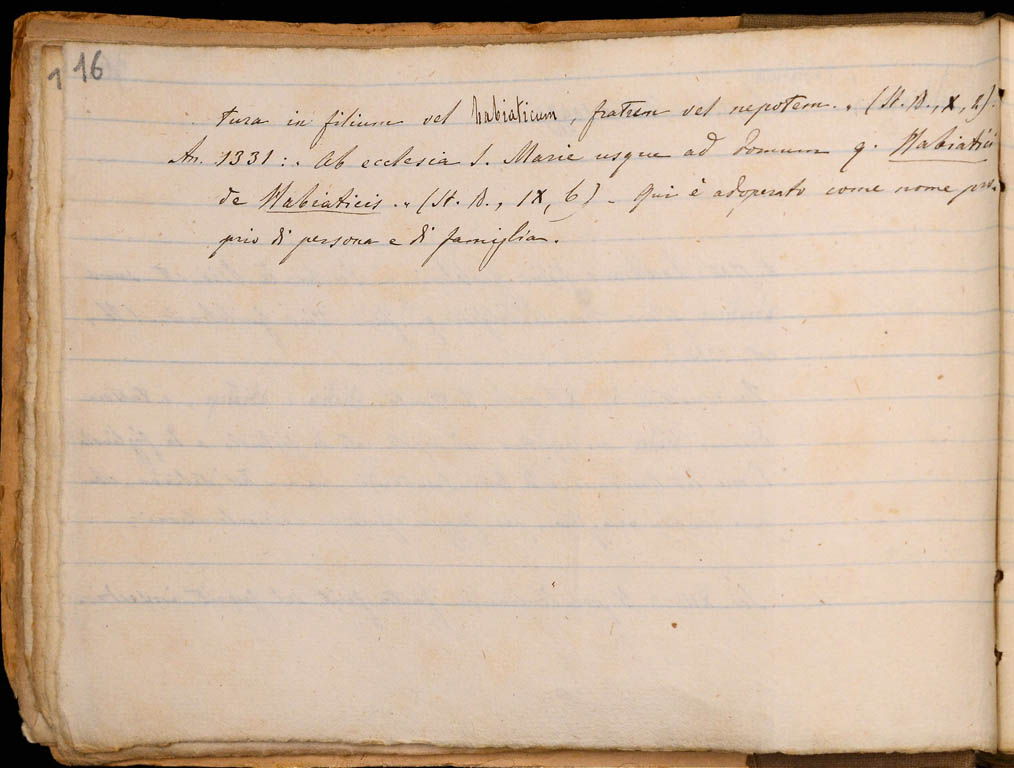 116
tura in filium vel habiaticum, fratrem vel nepotem. „ (St. B., X, 2).
An. 1331: „ Ab ecclesia S. Marie usque ad domum q. Habiatici
de Habiaticis. „ (St. B., IX, 6) _ Qui è adoperato come nome pro-
prio di persona e di famiglia.